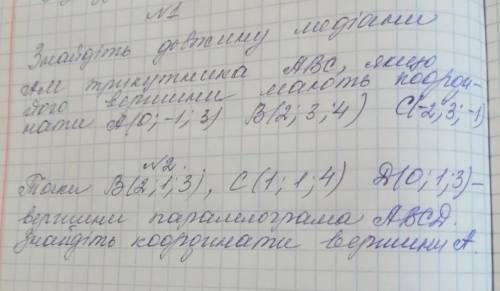 №1
Знайдіть довжину медіани
АМ трикутника АВС, якщо
його вершини мають коорди-
нати А(0; -1; 3) В(2; 3; 4) С(-2; 3; -1)
№2.
Точки В(2; 1; 3), С(1; 1; 4) Д(0; 1; 3) –
вершини паралелограма АВСД.
Знайдіть координати вершини А.